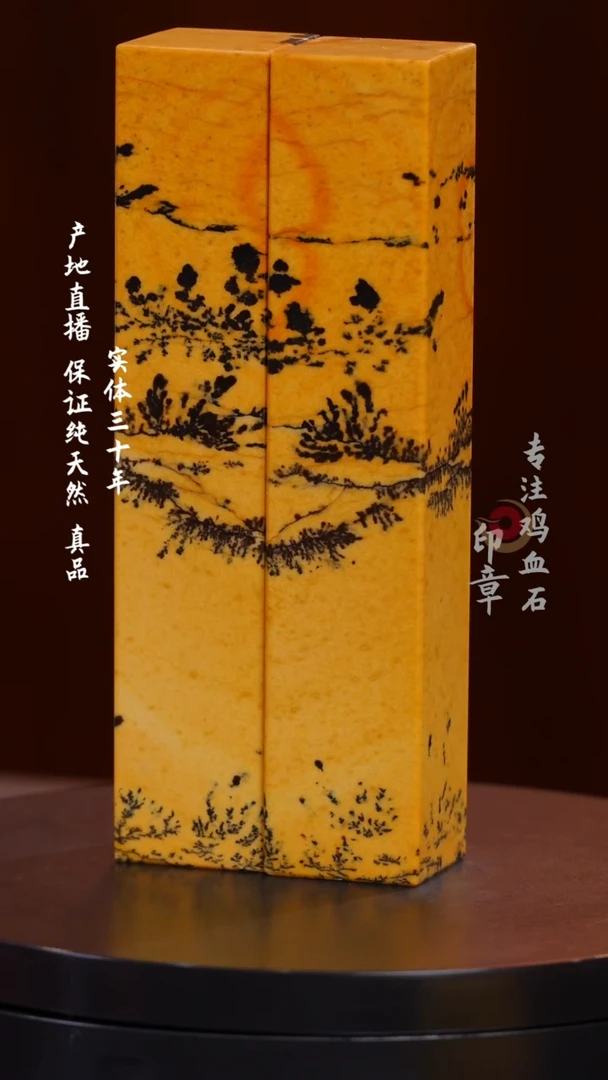 产地直播 保证纯天然 真品
实体三十年
专注鸡血石
印章